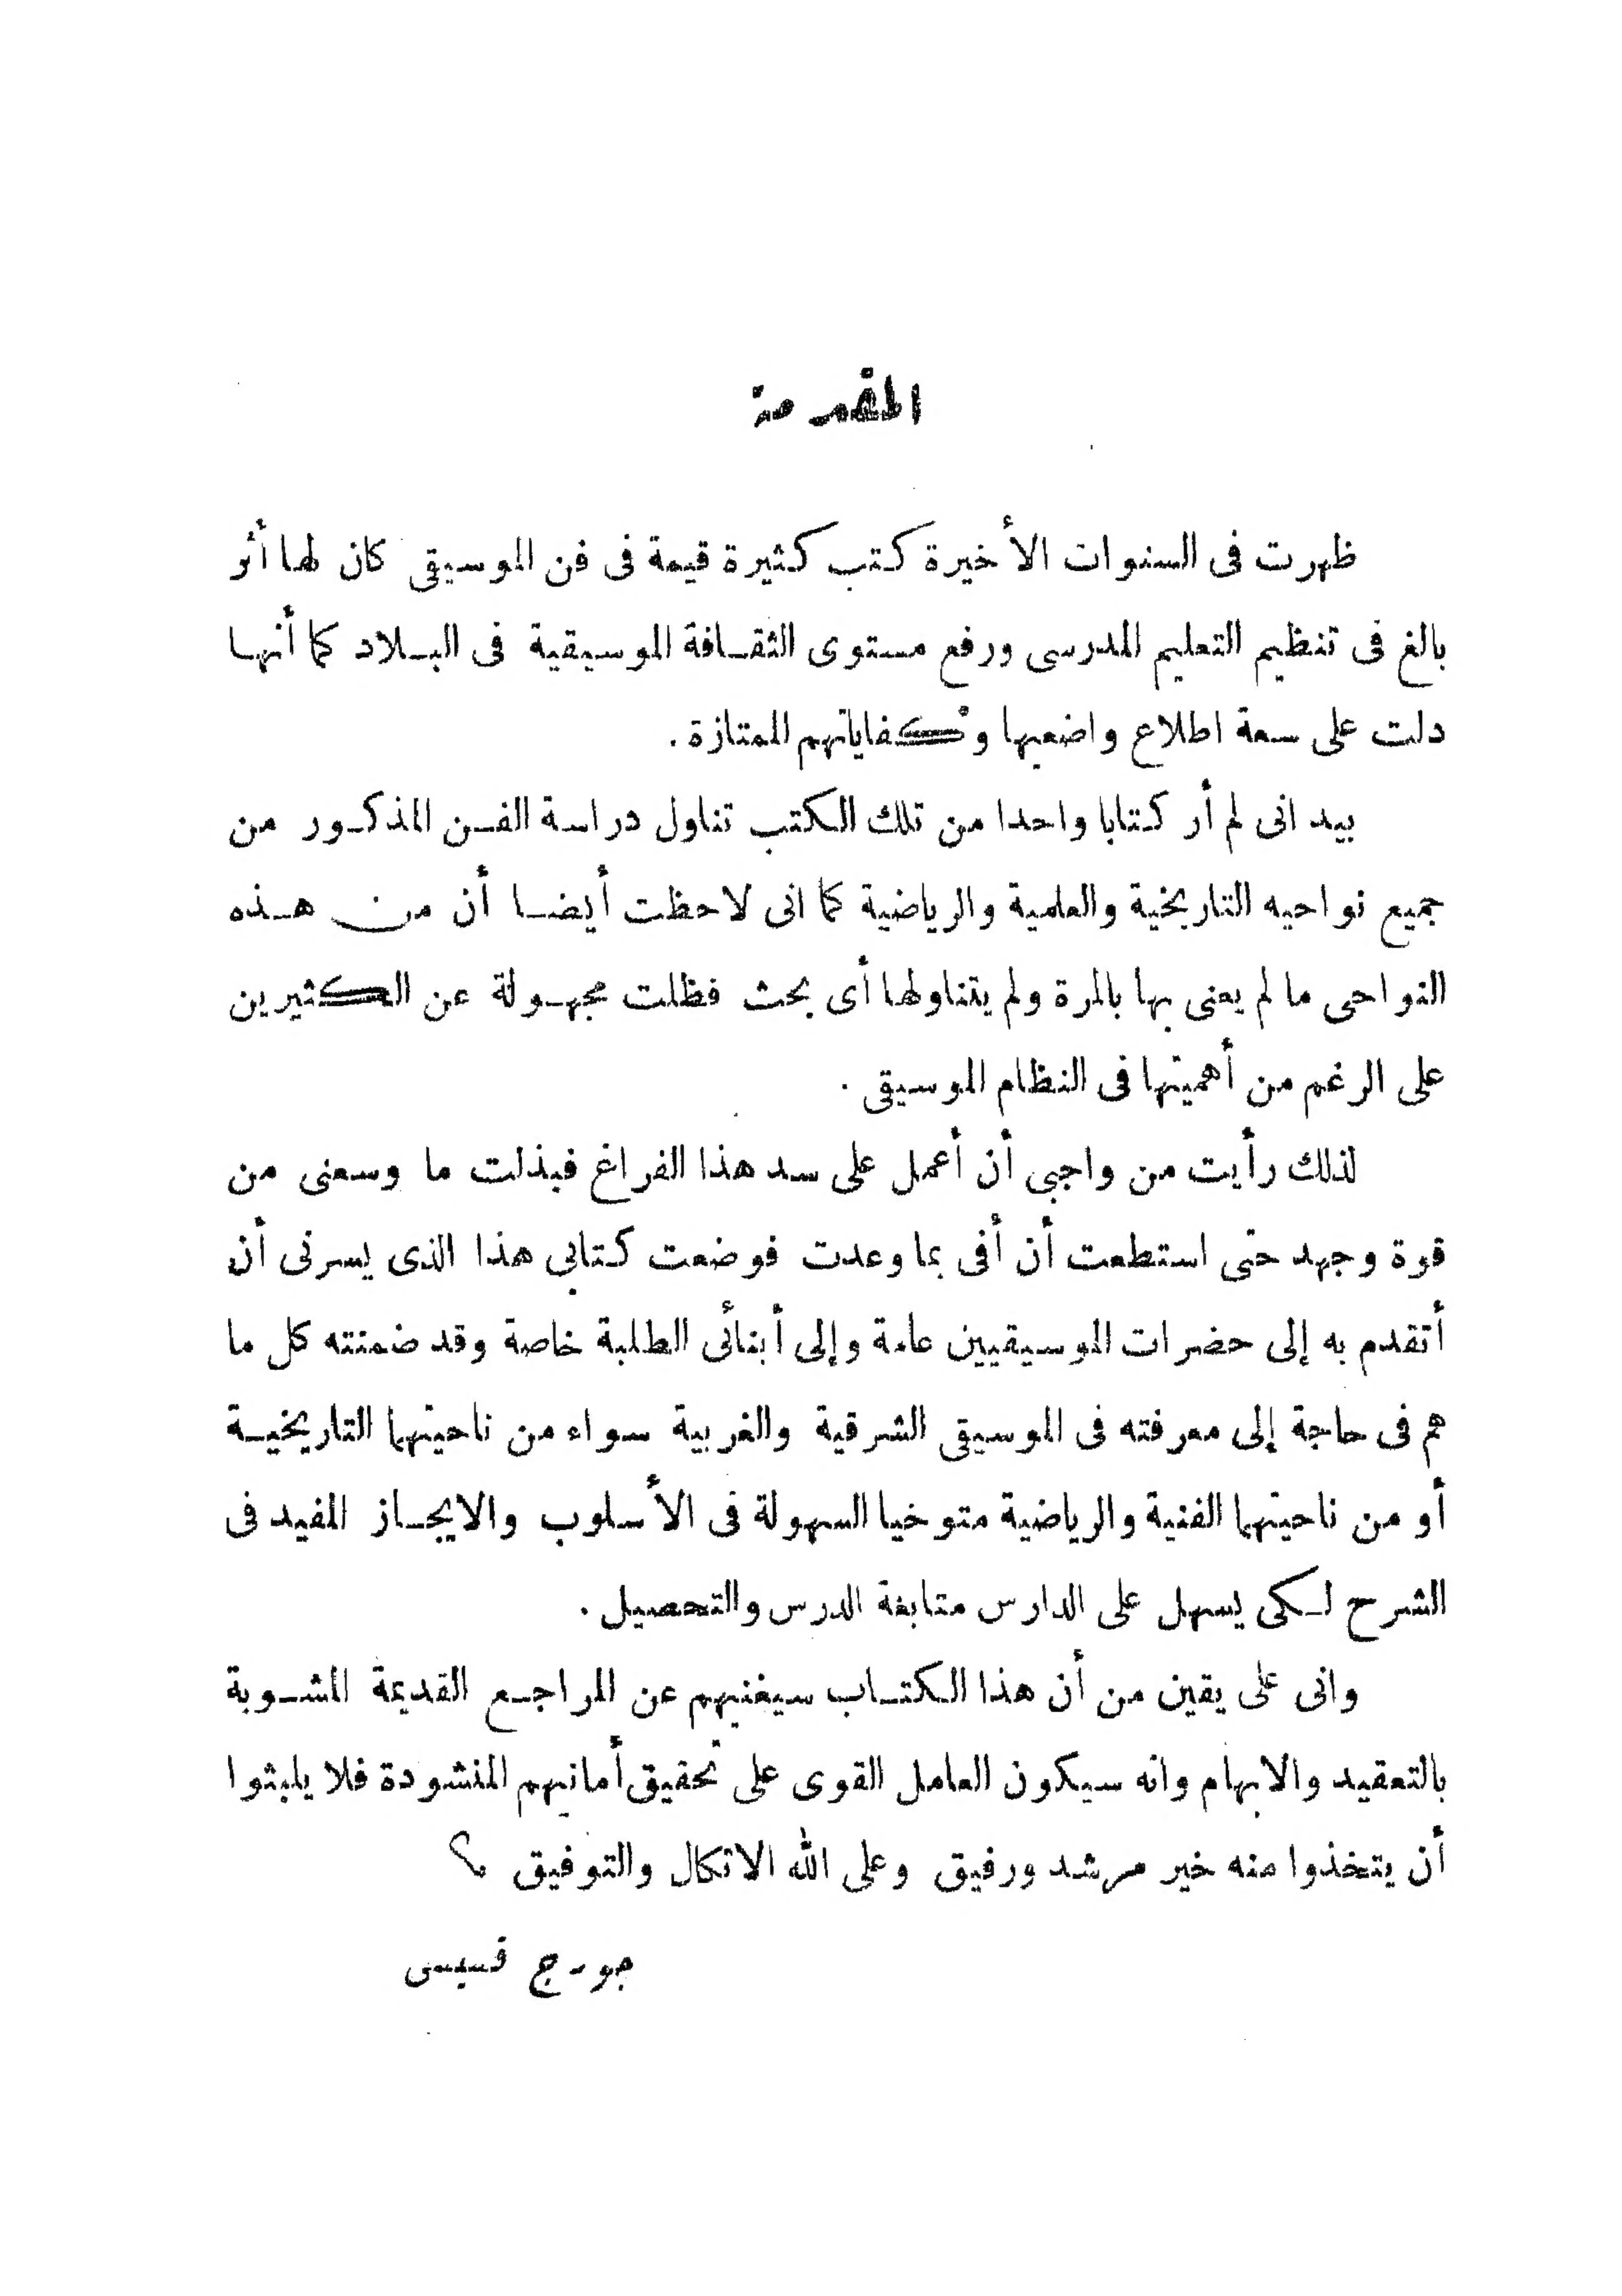 المقدمة
ظهرت فى السنوات الأخيرة كتب كثيرة قيمة فى فن الموسيقى كان لها أثر
بالغ فى تنظيم التعليم المدرسى ورفع مستوى الثقافة الموسيقية فى البلاد كما أنها
دلت على سعة اطلاع واضعيها وكفاياتهم الممتازة .
بيد انى لم أر كتابا واحدا من تلك الكتب تناول دراسة الفن المذكور من
جميع نواحيه التاريخية والعلمية والرياضية كما انى لاحظت أيضا أن من هذه
النواحى ما لم يعنى بها بالمرة ولم يتناولها أى بحث فظلت مجهولة عن الكثيرين
على الرغم من أهميتها فى النظام الموسيقى .
لذلك رأيت من واجبى أن أعمل على سد هذا الفراغ فبذلت ما وسعنى من
قوة وجهد حتى استطعت أن أفى بما وعدت فوضعت كتابى هذا الذى يسرنى أن
أتقدم به إلى حضرات الموسيقيين عامة وإلى أبنائى الطلبة خاصة وقد ضمنته كل ما
هم فى حاجة إلى معرفته فى الموسيقى الشرقية والغربية سواء من ناحيتهما التاريخية
أو من ناحيتهما الفنية والرياضية متوخيا السهولة فى الأسلوب والايجاز المفيد فى
الشرح لكى يسهل على الدارس متابعة الدرس والتحصيل .
وانى على يقين من أن هذا الكتاب سيغنيهم عن المراجع القديمة المشوبة
بالتعقيد والابهام وانه سيكون العامل القوى على تحقيق أمانيهم المنشودة فلا يلبثوا
أن يتخذوا منه خير مرشد ورفيق وعلى الله الاتكال والتوفيق
جورج قسيس